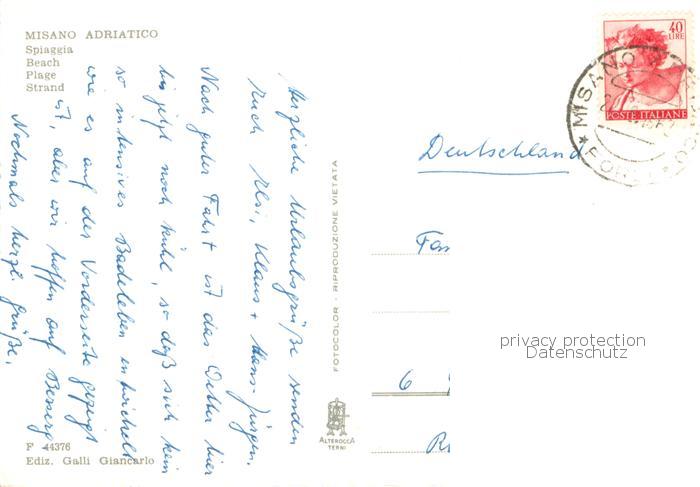 MISANO ADRIATICO
Spiaggia
Beach
Plage
Strand
Herzliche Urlaubsgrüße senden
Euch Uli, Klaus + Hans-Jürgen.
Nach guter Fahrt ist das Wetter hier
bis jetzt noch kühl, so daß sich kein
so intensives Badeleben entwickelt
wie es auf der Vorderseite gezeigt
ist, aber wir hoffen auf Besserg.
Nochmals herzl. Grüße.
F 44376
Ediz. Galli Giancarlo
FOTOCOLOR - RIPRODUZIONE VIETATA
ALTEROCCA
TERNI
40
LIRE
POSTE ITALIANE
MISANO
Deutschland
Fam
6
privacy protection
Datenschutz